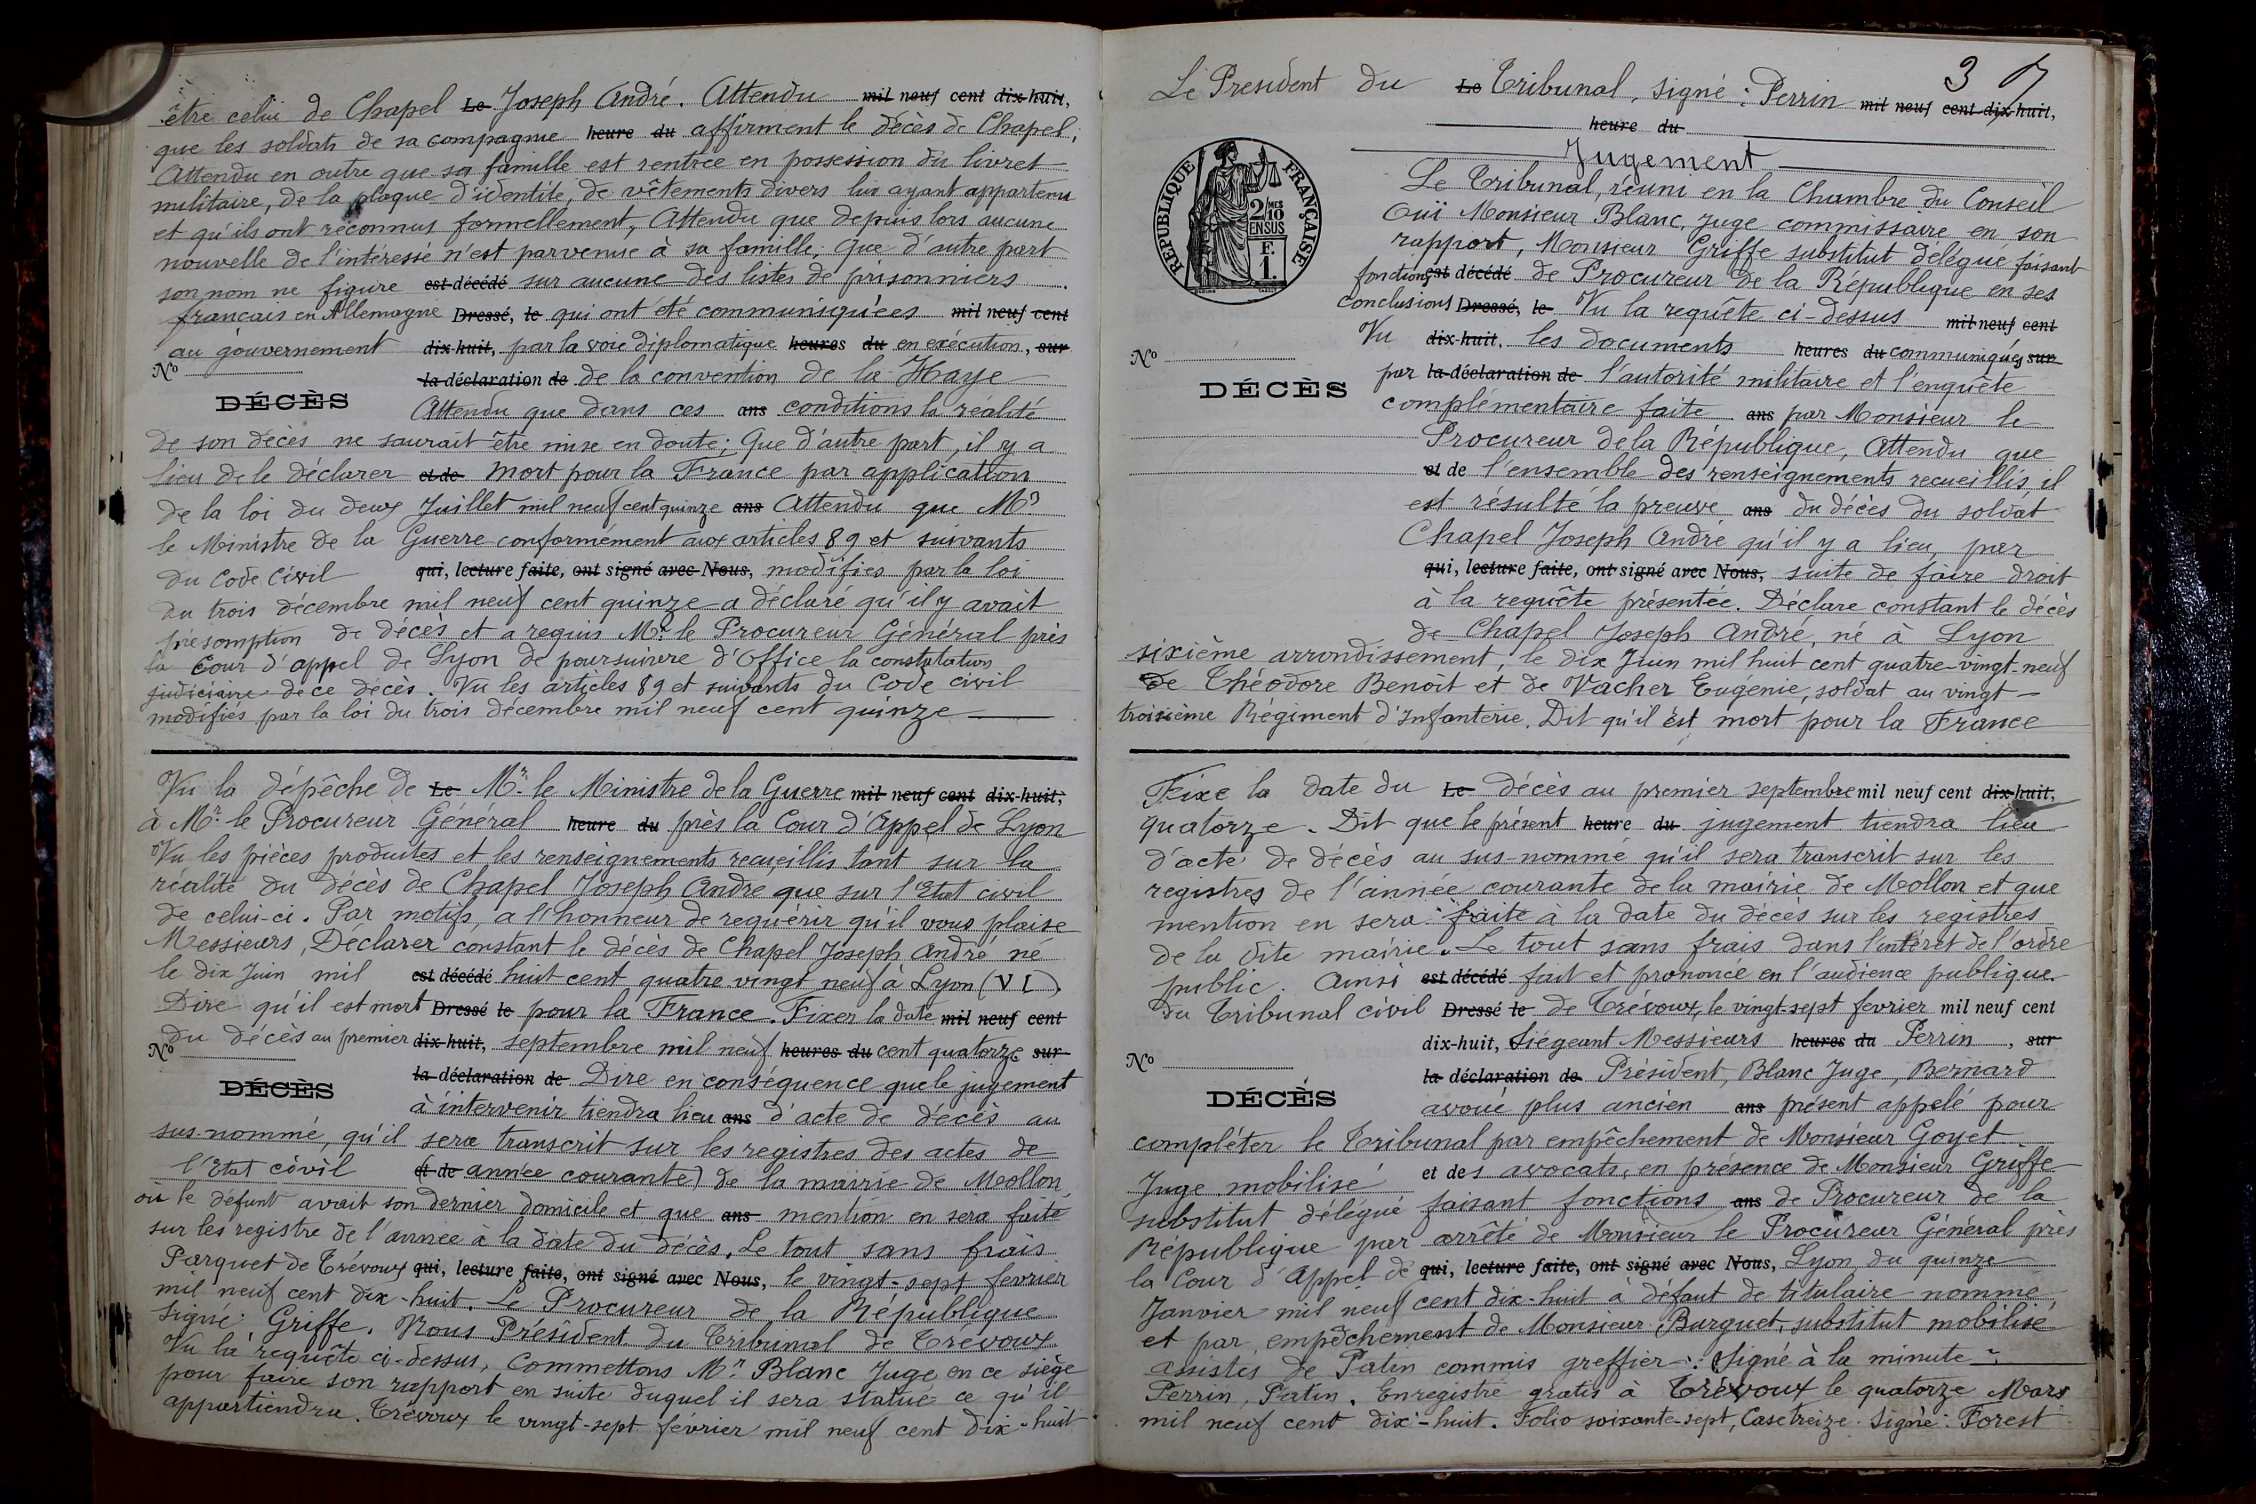 être celui de Chapel Le Joseph André. Attendu mil neuf cent dix-huit,
que les soldats de sa compagnie heure du affirment le décès de Chapel;
Attendu en outre que sa famille est rentrée en possession du livret
militaire, de la plaque d'identité, de vêtements divers lui ayant appartenu
et qu'ils ont reconnus formellement, Attendu que depuis lors aucune
nouvelle de l'intéressé n'est parvenue à sa famille; Que d'autre part
son nom ne figure est décédé sur aucune des listes de prisonniers
français en Allemagne Dressé, le qui ont été communiquées mil neuf cent
au gouvernement dix-huit, par la voie diplomatique heures du en exécution, sur
No la déclaration de de la convention de la Haye
DÉCÈS Attendu que dans ces ans conditions la réalité
de son décès ne saurait être mise en doute; Que d'autre part, il y a
lieu de le déclarer et de mort pour la France par application
de la loi du deux Juillet mil neuf cent quinze ans Attendu que Mr
le Ministre de la Guerre conformément aux articles 89 et suivants
du Code Civil qui, lecture faite, ont signé avec Nous, modifiés par la loi
du trois décembre mil neuf cent quinze a déclaré qu'il y avait
présomption de décès et a requis Mr le Procureur Général près
la Cour d'appel de Lyon de poursuivre d'Office la constatation
judiciaire de ce décès. Vu les articles 89 et suivants du Code civil
modifiés par la loi du trois décembre mil neuf cent quinze
Vu la dépêche de Le Mr le Ministre de la Guerre mil neuf cent dix-huit,
à Mr le Procureur Général heure du près la Cour d'Appel de Lyon
Vu les pièces produites et les renseignements recueillis tant sur la
réalité du décès de Chapel Joseph André que sur l'Etat civil
de celui-ci. Par motifs, a l'honneur de requérir qu'il vous plaise
Messieurs, Déclarer constant le décès de Chapel Joseph André né
le dix Juin mil est décédé huit cent quatre vingt neuf à Lyon (VI)
Dire qu'il est mort Dressé le pour la France. Fixer la date mil neuf cent
du décès au premier dix-huit, septembre mil neuf heures du cent quatorze sur
No la déclaration de Dire en conséquence que le jugement
DÉCÈS à intervenir tiendra lieu ans d'acte de décès au
sus-nommé, qu'il sera transcrit sur les registres des actes de
l'Etat civil (et de année courante) de la mairie de Mollon
où le défunt avait son dernier domicile et que ans mention en sera faite
sur les registre de l'année à la date du décès. Le tout sans frais
Parquet de Trévoux qui, lecture faite, ont signé avec Nous, le vingt-sept fevrier
mil neuf cent dix-huit. Le Procureur de la République
Signé: Griffe. Nous Président du Tribunal de Trévoux
Vu la requête ci-dessus, Commettons Mr Blanc Juge en ce siège
pour faire son rapport en suite duquel il sera statué ce qu'il
appartiendra. Trévoux le vingt-sept février mil neuf cent dix-huit
3
Le President du Le Tribunal, signé: Perrin mil neuf cent dix-huit,
heure du
Jugement
REPUBLIQUE FRANÇAISE
2 MES
10
EN SUS
F.
1.
Le Tribunal, réuni en la Chambre du Conseil
Ouï Monsieur Blanc, juge commissaire en son
rapport, Monsieur Griffe substitut délégué faisant
fonctions est décédé de Procureur de la République en ses
conclusions Dressé, le Vu la requête ci-dessus mil neuf cent
Vu dix-huit, les documents heures du communiqués sur
No par la déclaration de l'autorité militaire et l'enquête
DÉCÈS complémentaire faite ans par Monsieur le
Procureur de la République, Attendu que
et de l'ensemble des renseignements recueillis, il
est résulté la preuve ans du décès du soldat
Chapel Joseph André qu'il y a lieu, par
qui, lecture faite, ont signé avec Nous, suite de faire droit
à la requête présentée. Déclare constant le décès
de Chapel Joseph André, né à Lyon
sixième arrondissement, le dix Juin mil huit cent quatre-vingt-neuf
de Théodore Benoît et de Vacher Eugénie, soldat au vingt-
troisième Régiment d'Infanterie. Dit qu'il est mort pour la France
Fixe la date du Le décès au premier septembre mil neuf cent dix-huit,
quatorze. Dit que le présent heure du jugement tiendra lieu
d'acte de décès au sus-nommé qu'il sera transcrit sur les
registres de l'année courante de la mairie de Mollon et que
mention en sera faite à la date du décès sur les registres
de la dite mairie. Le tout sans frais dans l'intérêt de l'ordre
public. Ainsi est décédé fait et prononcé en l'audience publique
du Tribunal civil Dressé le de Trévoux, le vingt-sept fevrier mil neuf cent
dix-huit, Siégeant Messieurs heures du Perrin, sur
No la déclaration de Président, Blanc Juge, Bernard
DÉCÈS avoué plus ancien ans présent appelé pour
compléter le Tribunal par empêchement de Monsieur Goyet
Juge mobilisé et des avocats, en présence de Monsieur Griffe
substitut délégué faisant fonctions ans de Procureur de la
République par arrêté de Monsieur le Procureur Général près
la Cour d'Appel de qui, lecture faite, ont signé avec Nous, Lyon, du quinze
Janvier mil neuf cent dix-huit à défaut de titulaire nommé,
et par empêchement de Monsieur Burguet, substitut mobilisé
assistés de Patin commis greffier: Signé à la minute:
Perrin, Patin. Enregistré gratis à Trévoux le quatorze Mars
mil neuf cent dix-huit. Folio soixante-sept, Case treize. Signé: Forest